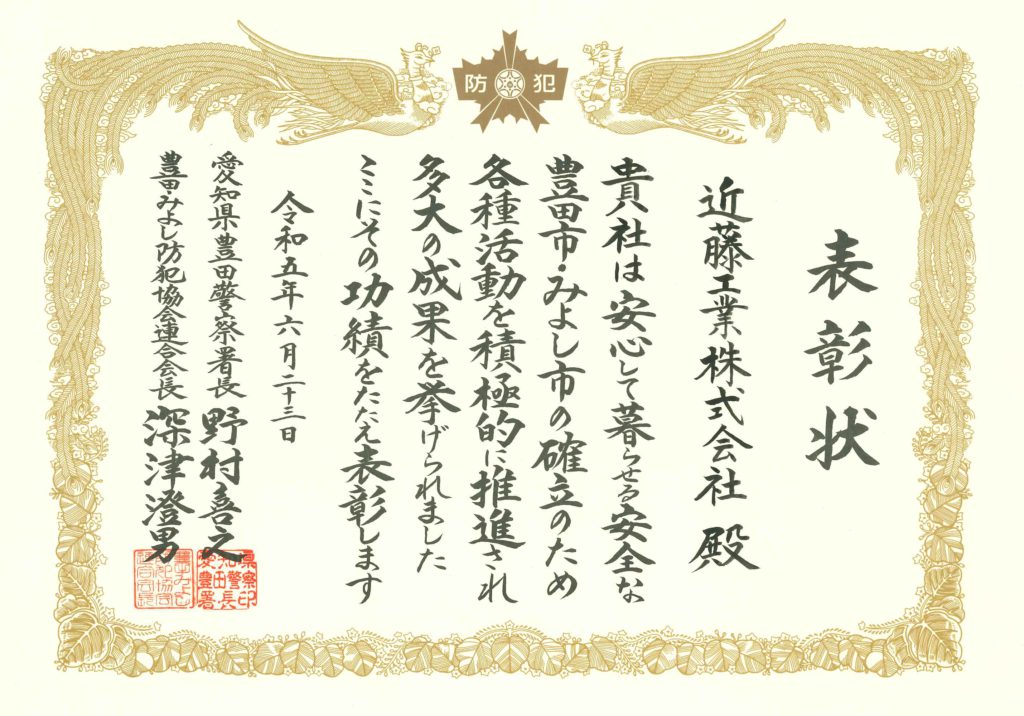 防犯
表彰状
近藤工業株式会社 殿
貴社は安心して暮らせる安全な
豊田市・みよし市の確立のため
各種活動を積極的に推進され
多大の成果を挙げられました
ここにその功績をたたえ表彰します
令和五年六月二十三日
愛知県豊田警察署長 野村喜之
豊田・みよし防犯協会連合会長 深津澄男